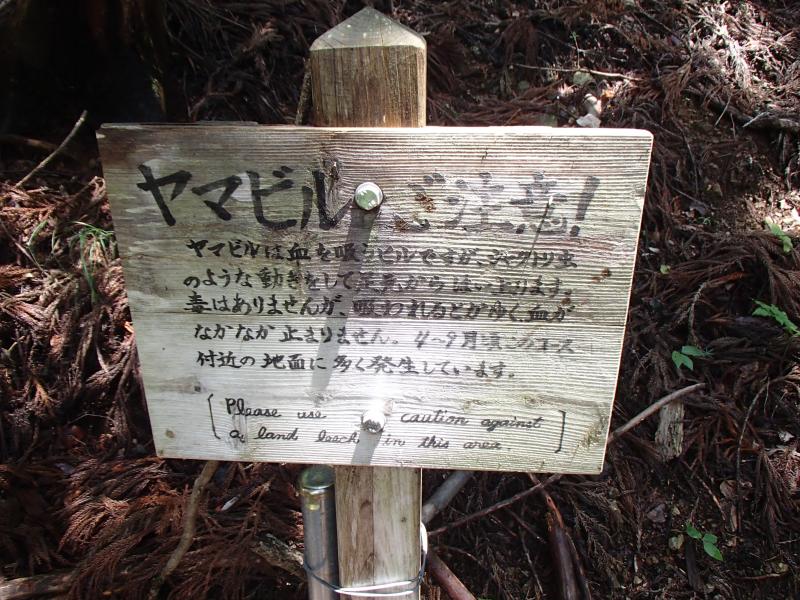 ヤマビル ご注意!
ヤマビルは血を吸うヒルですが、シャクトリ虫
のような動きをして足元からはい上ります。
毒はありませんが、吸われるとかゆく、血が
なかなか止まりません。4～9月頃このコース
付近の地面に多く発生しています。
[Please use caution against
a land leach in this area.]